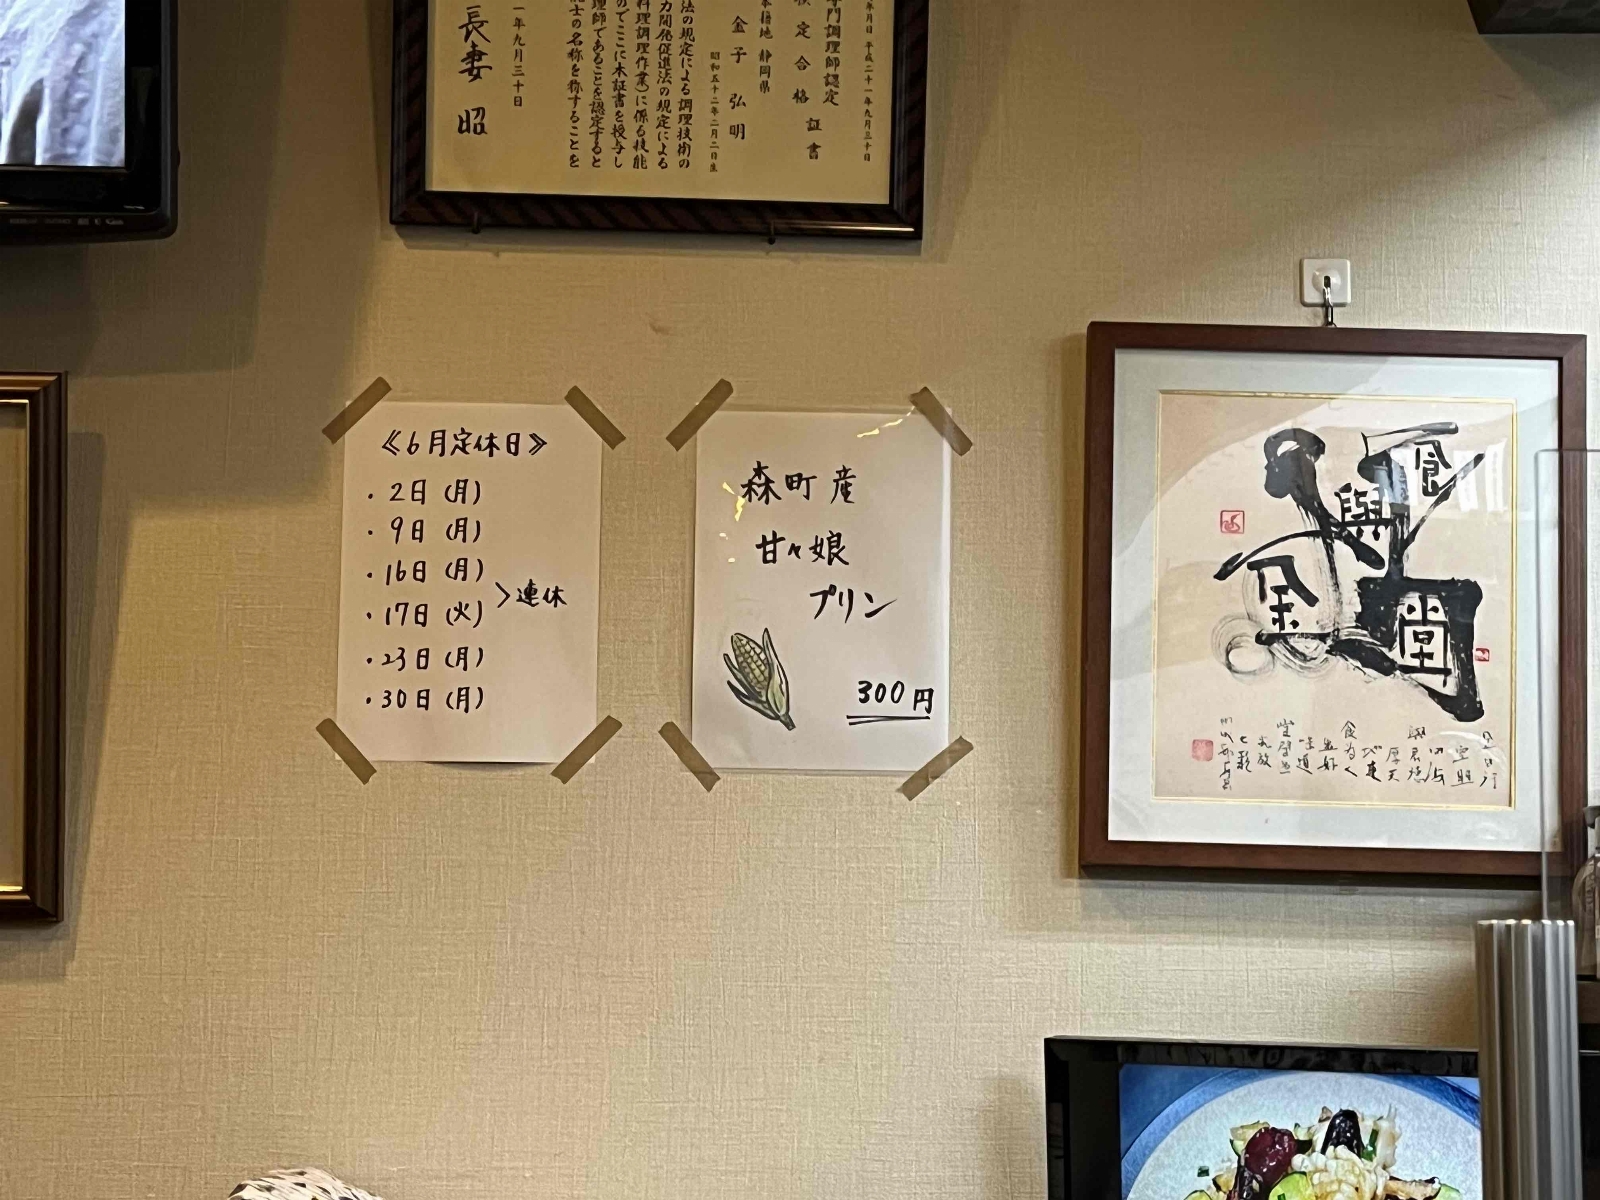 専門調理師認定
検定合格証書
平成二十一年九月三十日
本籍地 静岡県
金子弘明
昭和五十二年二月二日生
法の規定による調理技術の
力開発促進法の規定による
料理調理作業)に係る技能
のでここに本証書を授与し
理師であることを認定すると
能士の名称を称することを
一年九月三十日
長妻 昭
《6月定休日》
・2日(月)
・9日(月)
・16日(月)
・17日(火)
>連休
・23日(月)
・30日(月)
森町産
甘々娘
プリン
300円
食
與
堂
金